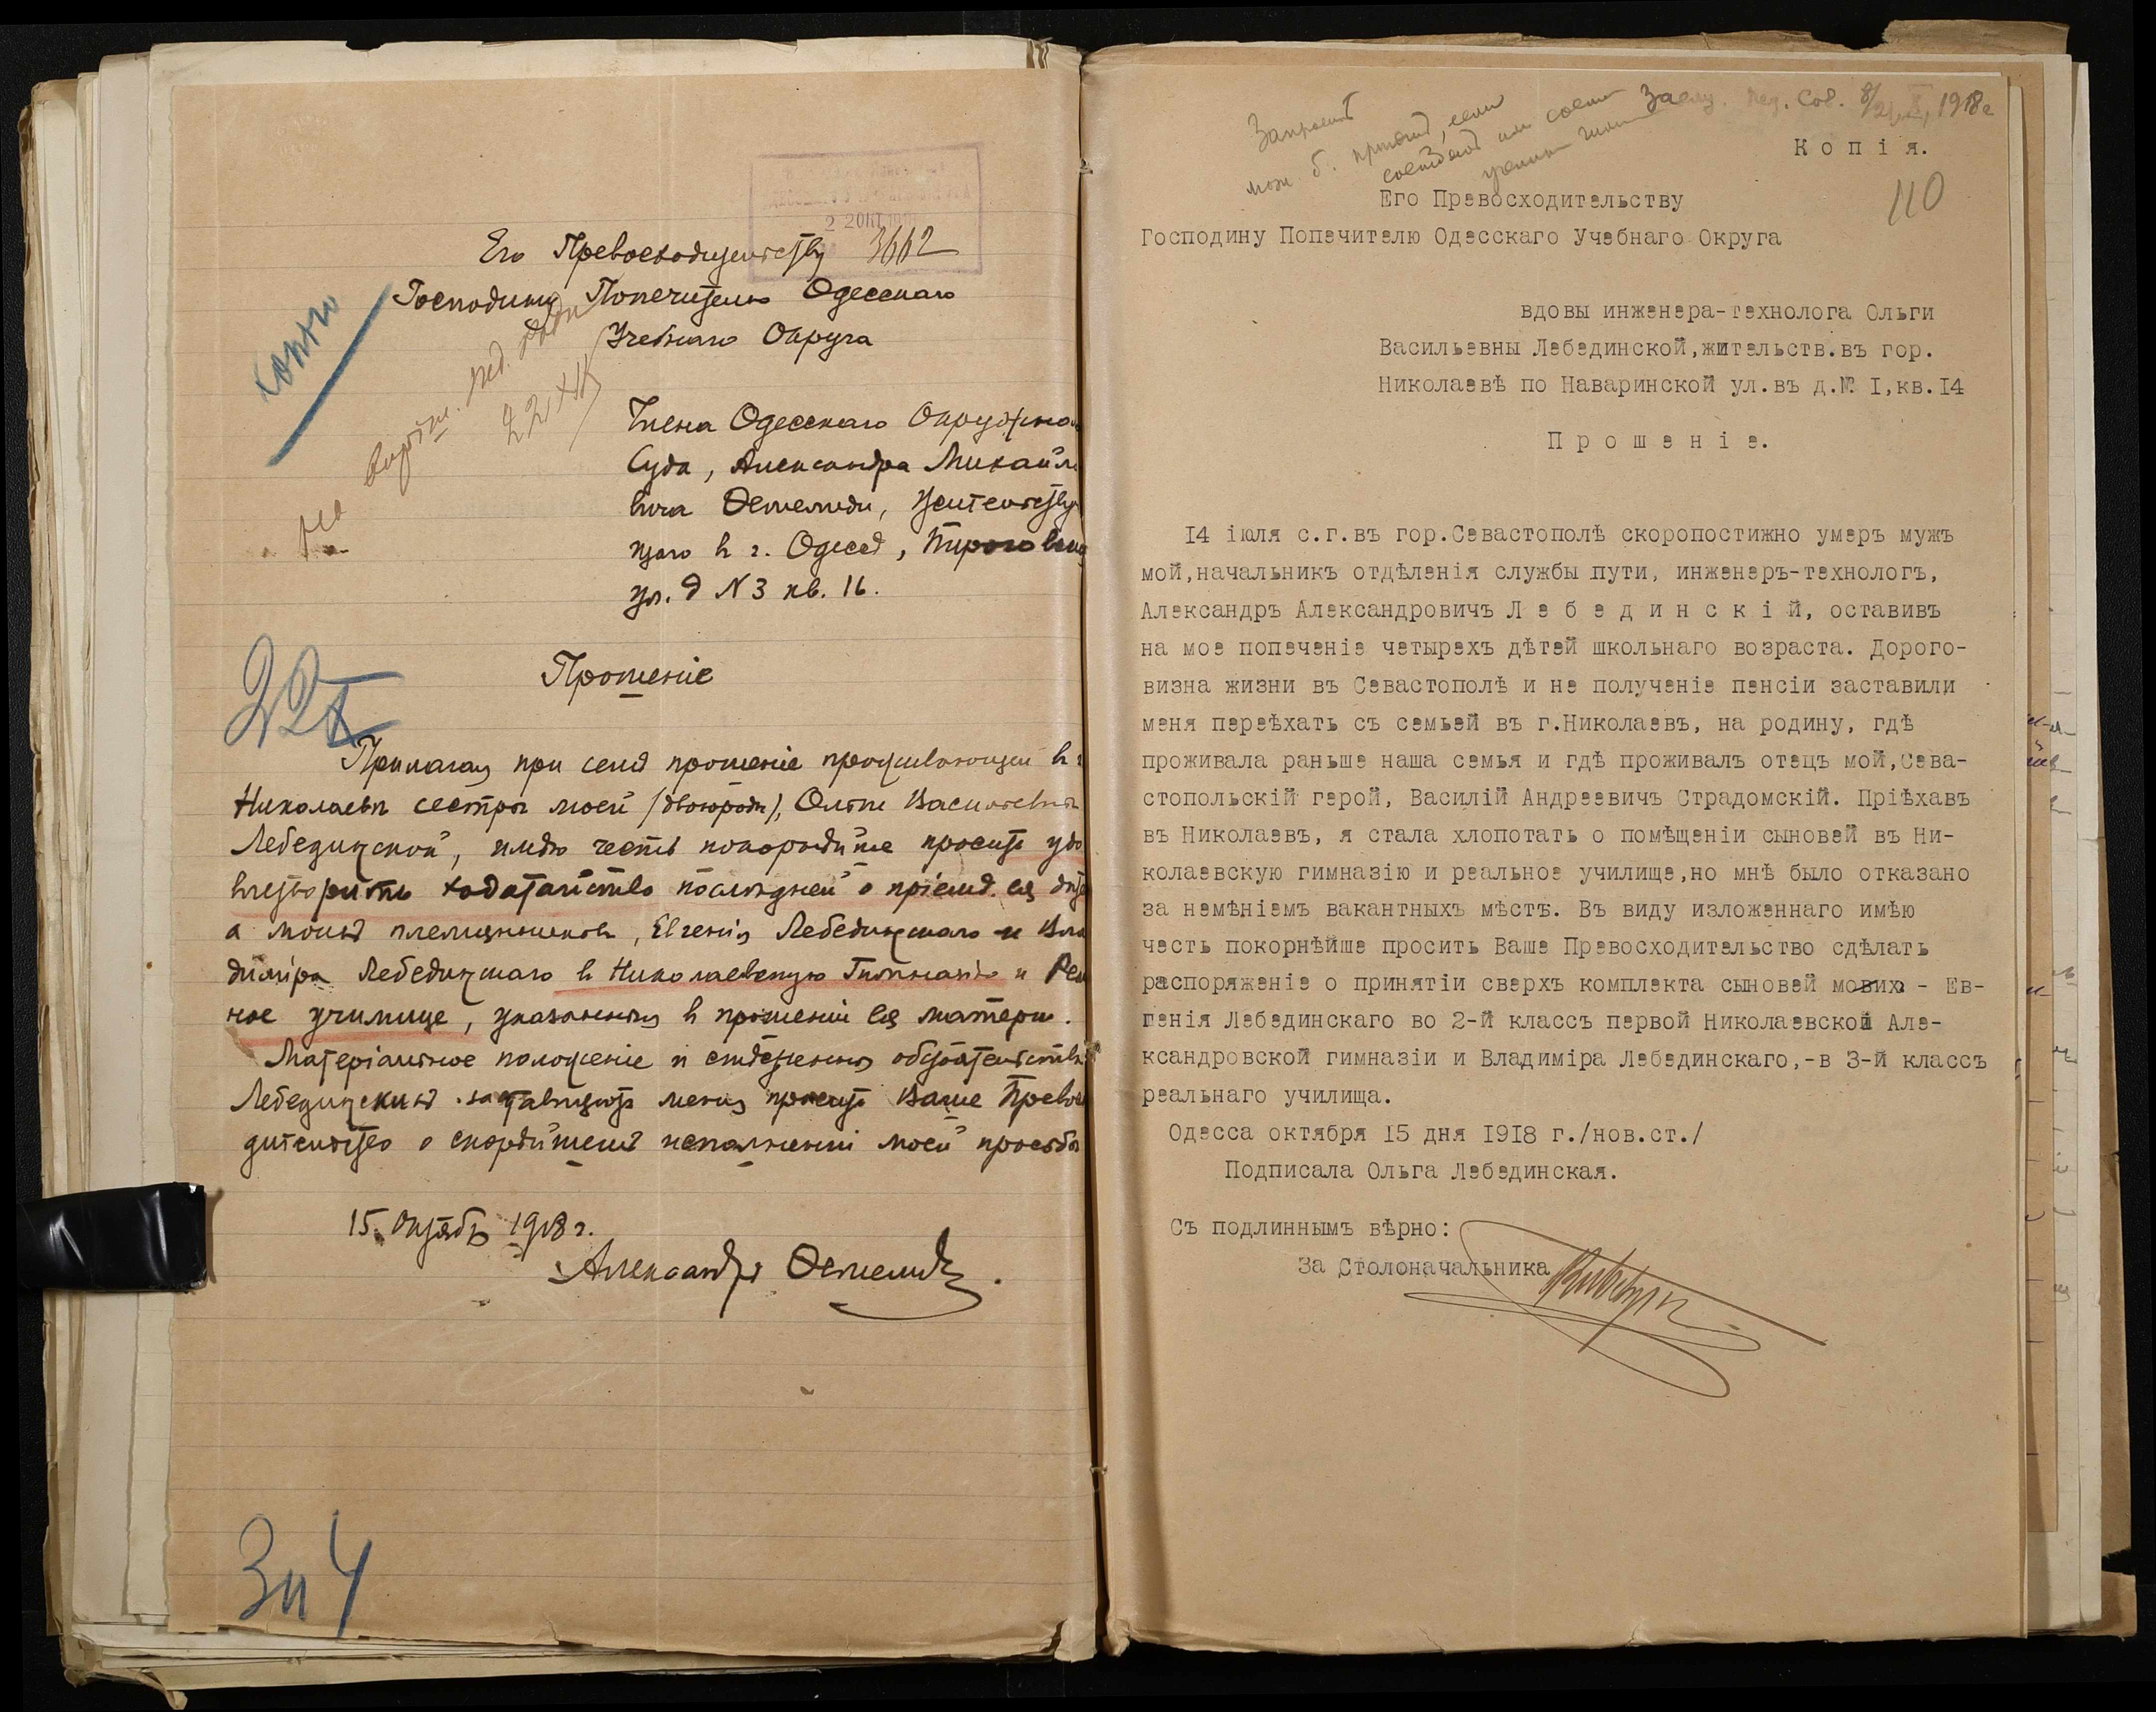 2 2 ОКТ. 191
Его Превосходительству 3662
Господину Попечителю Одесскаго
Учебнаго Округа
копію
22/X
Члена Одесскаго Окружно
Суда, Александра Михайл
вича
щаго в г. Одессѣ,
ул. д N 3 кв. 16.
Прошеніе
22
Прилагая при семъ прошеніе проживающей в г
Николаевѣ сестры моей (двоюродн), Ольги Васильевны
Лебединской, имѣю честь покорнѣйше просить удо
влетворить ходатайство послѣдней о пріемѣ ея дѣте
а моихъ племянниковъ, Евгенія Лебединскаго и Вла
диміра Лебединскаго в Николаевскую Гимназію и Реа
ное училище, указанныя в прошеніи ея матери.
Матеріальное положеніе и стѣсненныя обстоятельств
Лебединскихъ заставляютъ меня просить Ваше Превос
дительство о скорѣйшемъ исполненіи моей просьбы
15 Октября 1918 г.
Александръ
Зп 4
Засл. Пед. Сов. 8/21 X, 1918 г
Копія.
110
Его Превосходительству
Господину Попечителю Одесскаго Учебнаго Округа
вдовы инженера-технолога Ольги
Васильевны Лебединской,жительств.въ гор.
Николаевѣ по Наваринской ул.въ д.№ I,кв.I4
Прошеніе.
I4 іюля с.г.въ гор.Севастополѣ скоропостижно умеръ мужъ
мой,начальникъ отдѣленія службы пути, инженеръ-технологъ,
Александръ Александровичъ Лебединскій, оставивъ
на мое попеченіе четырехъ дѣтей школьнаго возраста. Дорого-
визна жизни въ Севастополѣ и не полученіе пенсіи заставили
меня переѣхать съ семьей въ г.Николаевъ, на родину, гдѣ
проживала раньше наша семья и гдѣ проживалъ отецъ мой,Сева-
стопольскій герой, Василій Андреевичъ Страдомскій. Пріѣхавъ
въ Николаевъ, я стала хлопотать о помѣщеніи сыновей въ Ни-
колаевскую гимназію и реальное училище,но мнѣ было отказано
за немѣніемъ вакантныхъ мѣстъ. Въ виду изложеннаго имѣю
честь покорнѣйше просить Ваше Превосходительство сдѣлать
распоряженіе о принятіи сверхъ комплекта сыновей моихъ - Ев-
генія Лебединскаго во 2-й классъ первой Николаевской Але-
ксандровской гимназіи и Владиміра Лебединскаго,-в 3-й классъ
реальнаго училища.
Одесса октября I5 дня I9I8 г./нов.ст./
Подписала Ольга Лебединская.
Съ подлиннымъ вѣрно:
За Столоначальника